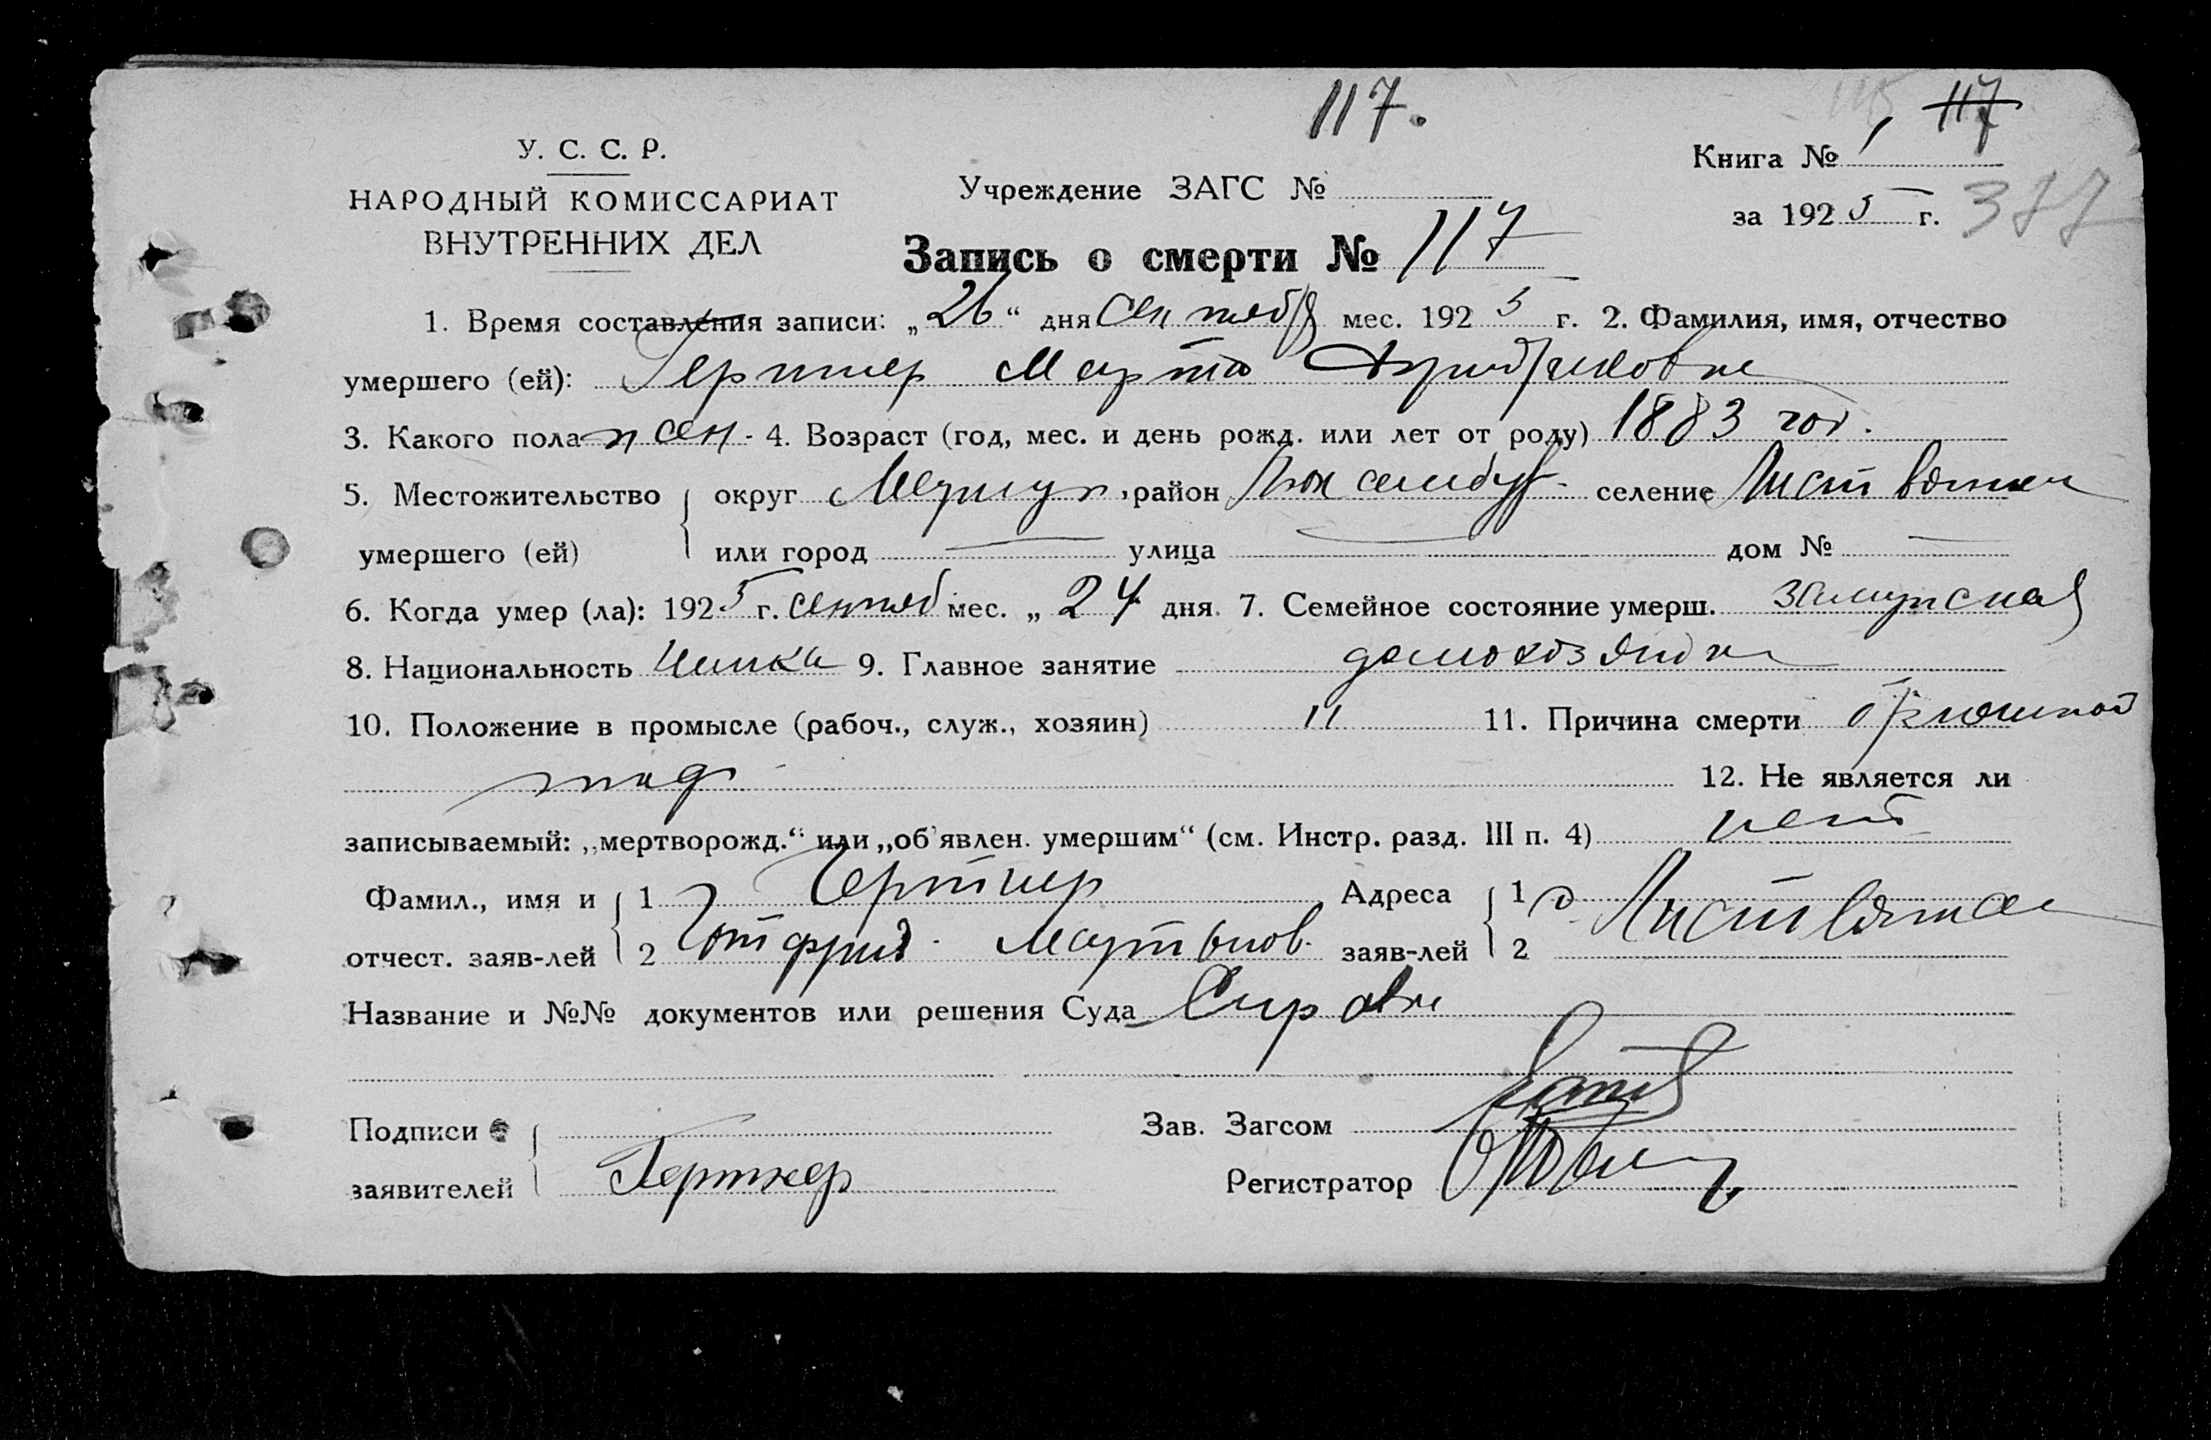 117.
117
У. С. С. Р.
Книга № 1
НАРОДНЫЙ КОМИССАРИАТ
Учреждение ЗАГС №
ВНУТРЕННИХ ДЕЛ
за 1925 г. 377
Запись о смерти № 117
1. Время составления записи: „26“ дня сентября мес. 1925 г. 2. Фамилия, имя, отчество
умершего (ей): Гертнер Марта Фридриховна
3. Какого пола жен. 4. Возраст (год, мес. и день рожд. или лет от роду) 1883 год.
5. Местожительство округ Мариуп, район Люксембург селение Листвянка
умершего (ей) или город — улица — дом № —
6. Когда умер (ла): 1925 г. сентяб мес. „24 дня. 7. Семейное состояние умерш. замужная
8. Национальность немка 9. Главное занятие домохозяйка
10. Положение в промысле (рабоч., служ., хозяин) " 11. Причина смерти брюшной
тиф 12. Не является ли
записываемый: „мертворожд.“ или „об'явлен. умершим“ (см. Инстр. разд. III п. 4) нет
Фамил., имя и 1 Гертнер Адреса 1 Листвянка
отчест. заяв-лей 2 Готфрид заяв-лей 2
Название и №№ документов или решения Суда Справк
Подписи Зав. Загсом
заявителей Гертнер Регистратор